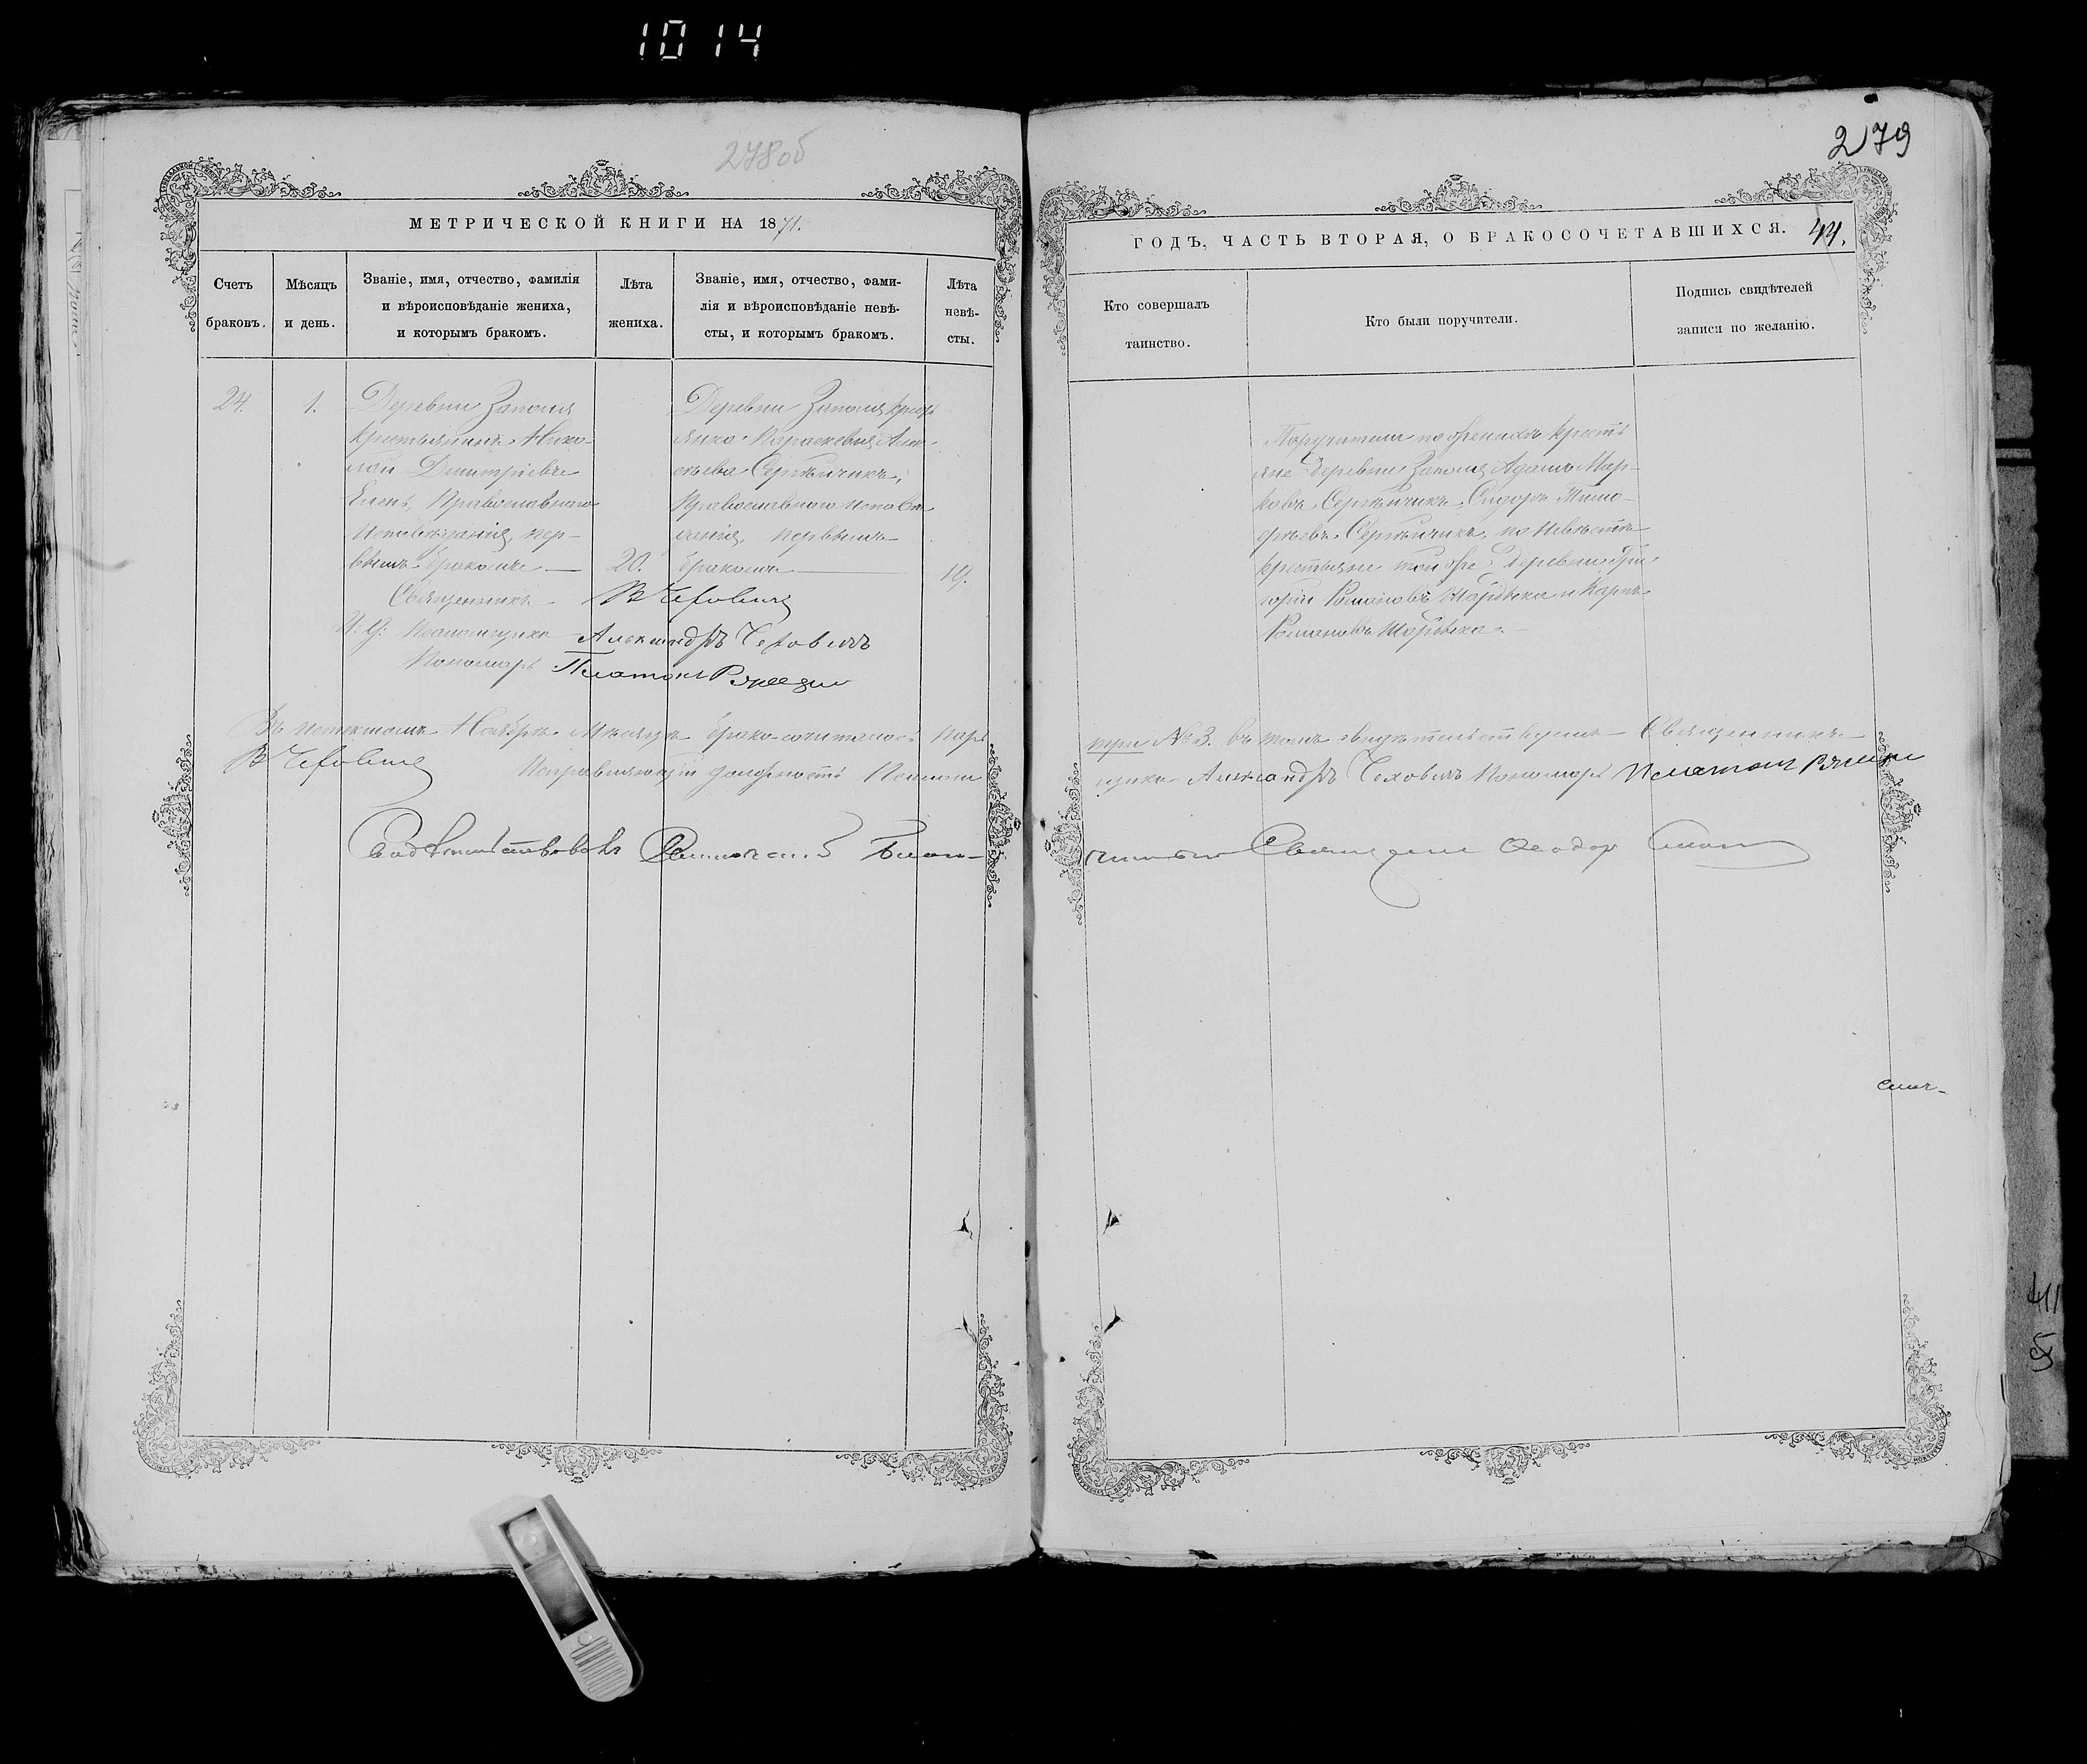 1014
278об
МЕТРИЧЕСКОЙ КНИГИ НА 1871.
Счетъ браковъ.
Мѣсяцъ и день.
Званіе, имя, отчество, фамилія
и вѣроисповѣданіе жениха,
и которымъ бракомъ.
Лѣта жениха.
Званіе, имя, отчество, фами-
лія и вѣроисповѣданіе невѣ-
сты, и которымъ бракомъ.
Лѣта
невѣ-
сты.
24.
1.
Деревни Заполя
крестьянинъ Нико-
лай Дмитріевъ
Православнаго
исповѣданія, пер-
вымъ бракомъ
20.
Деревни Заполя крест
янка Параскевія Алек-
сѣева Сергѣичикъ,
Православнаго исповѣ
данія, первымъ
бракомъ
19.
Священникъ
И. Д. Псаломщика Александръ Чеховичъ
Пономарь Платонъ
Въ истекшомъ Ноябрѣ Мѣсяцѣ брако сочиталось паръ
Исправляющій должность Псалом
279
ГОДЪ, ЧАСТЬ ВТОРАЯ, О БРАКОСОЧЕТАВШИХСЯ. 44.
Кто совершалъ
таинство.
Кто были поручители.
Подпись свидѣтелей
записи по желанію.
Поручители по женихѣ крестъ
яне деревни Заполя Адамъ Мар-
ковъ Сергѣичикъ, Сидоръ Тимо-
фѣевъ Сергѣичикъ, по невѣстѣ
крестьяне той же деревни Гри-
горій Романовъ и Карпъ
Романовъ
три № 3. въ томъ свидѣтельствуемъ Священникъ
щика Александръ Чеховичъ Пономарь Платонъ
Благо-
чинный Священникъ Ѳеодоръ
41